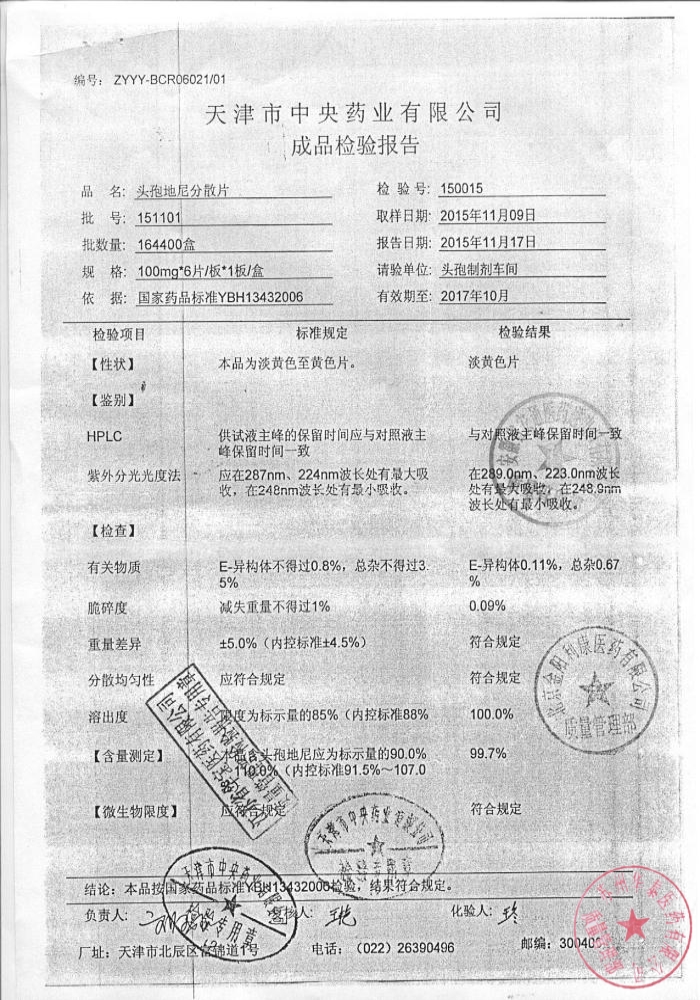 编号: ZYYY-BCR06021/01
天津市中央药业有限公司
成品检验报告
品 名: 头孢地尼分散片 检 验 号: 150015
批 号: 151101 取样日期: 2015年11月09日
批数量: 164400盒 报告日期: 2015年11月17日
规 格: 100mg*6片/板*1板/盒 请验单位: 头孢制剂车间
依 据: 国家药品标准YBH13432006 有效期至: 2017年10月
检验项目 标准规定 检验结果
【性状】 本品为淡黄色至黄色片。 淡黄色片
【鉴别】
HPLC 供试液主峰的保留时间应与对照液主 与对照液主峰保留时间一致
峰保留时间一致
紫外分光光度法 应在287nm、224nm波长处有最大吸 在289.0nm、223.0nm波长
收，在248nm波长处有最小吸收。 处有最大吸收，在248.9nm
波长处有最小吸收。
【检查】
有关物质 E-异构体不得过0.8%，总杂不得过3. E-异构体0.11%，总杂0.67
5% %
脆碎度 减失重量不得过1% 0.09%
重量差异 ±5.0%（内控标准±4.5%） 符合规定
分散均匀性 应符合规定 符合规定
溶出度 限度为标示量的85%（内控标准88% 100.0%
【含量测定】 本品含头孢地尼应为标示量的90.0% 99.7%
~110.0%（内控标准91.5%～107.0
【微生物限度】 应符合规定 符合规定
天津市中央药业有限公司
北京金阳利康医药有限公司
质量管理部
结论: 本品按国家药品标准YBH13432006检验，结果符合规定。
负责人: 复核人: 化验人:
天津市中央药业有限公司
检验专用章
厂址: 天津市北辰区 锦道1号 电话: （022）26390496 邮编: 30040